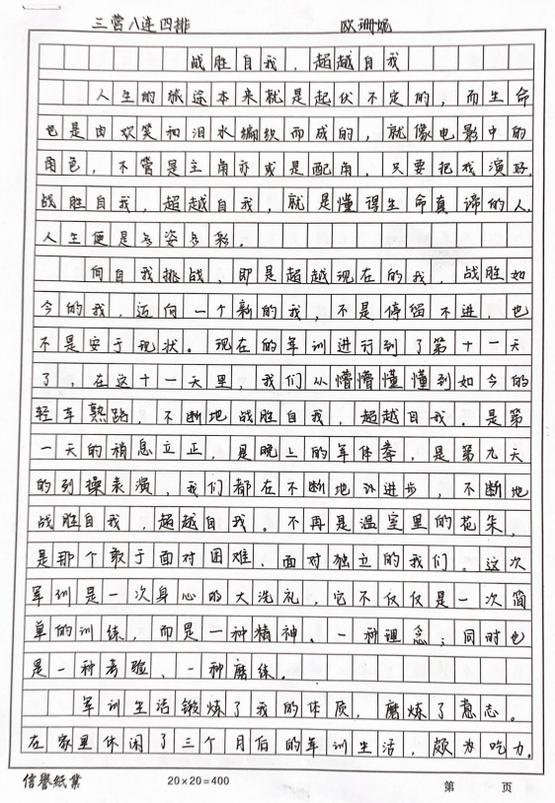 三营八连四排 欧珊妮
战胜自我，超越自我
人生的旅途本来就是起伏不定的，而生命
也是由欢笑和泪水编织而成的，就像电影中的
角色，不管是主角亦或是配角，只要把戏演好，
战胜自我，超越自我，就是懂得生命真谛的人，
人生便是多姿多彩。
向自我挑战，即是超越现在的我，战胜如
今的我，迈向一个新的我，不是停留不进，也
不是安于现状。现在的军训进行到了第十一天
了，在这十一天里，我们从懵懵懂懂到如今的
轻车熟路，不断地战胜自我，超越自我。是第
一天的稍息立正，是晚上的军体拳，是第九天
的列操表演，我们都在不断地进步，不断地
战胜自我，超越自我。不再是温室里的花朵，
是那个敢于面对困难、面对独立的我们。这次
军训是一次身心的大洗礼，它不仅仅是一次简
单的训练，而是一种精神、一种理念；同时也
是一种考验、一种磨练。
军训生活锻炼了我的体质，磨炼了意志。
在家里休闲了三个月后的军训生活，颇为吃力。
信誉纸业 20×20=400 第 页